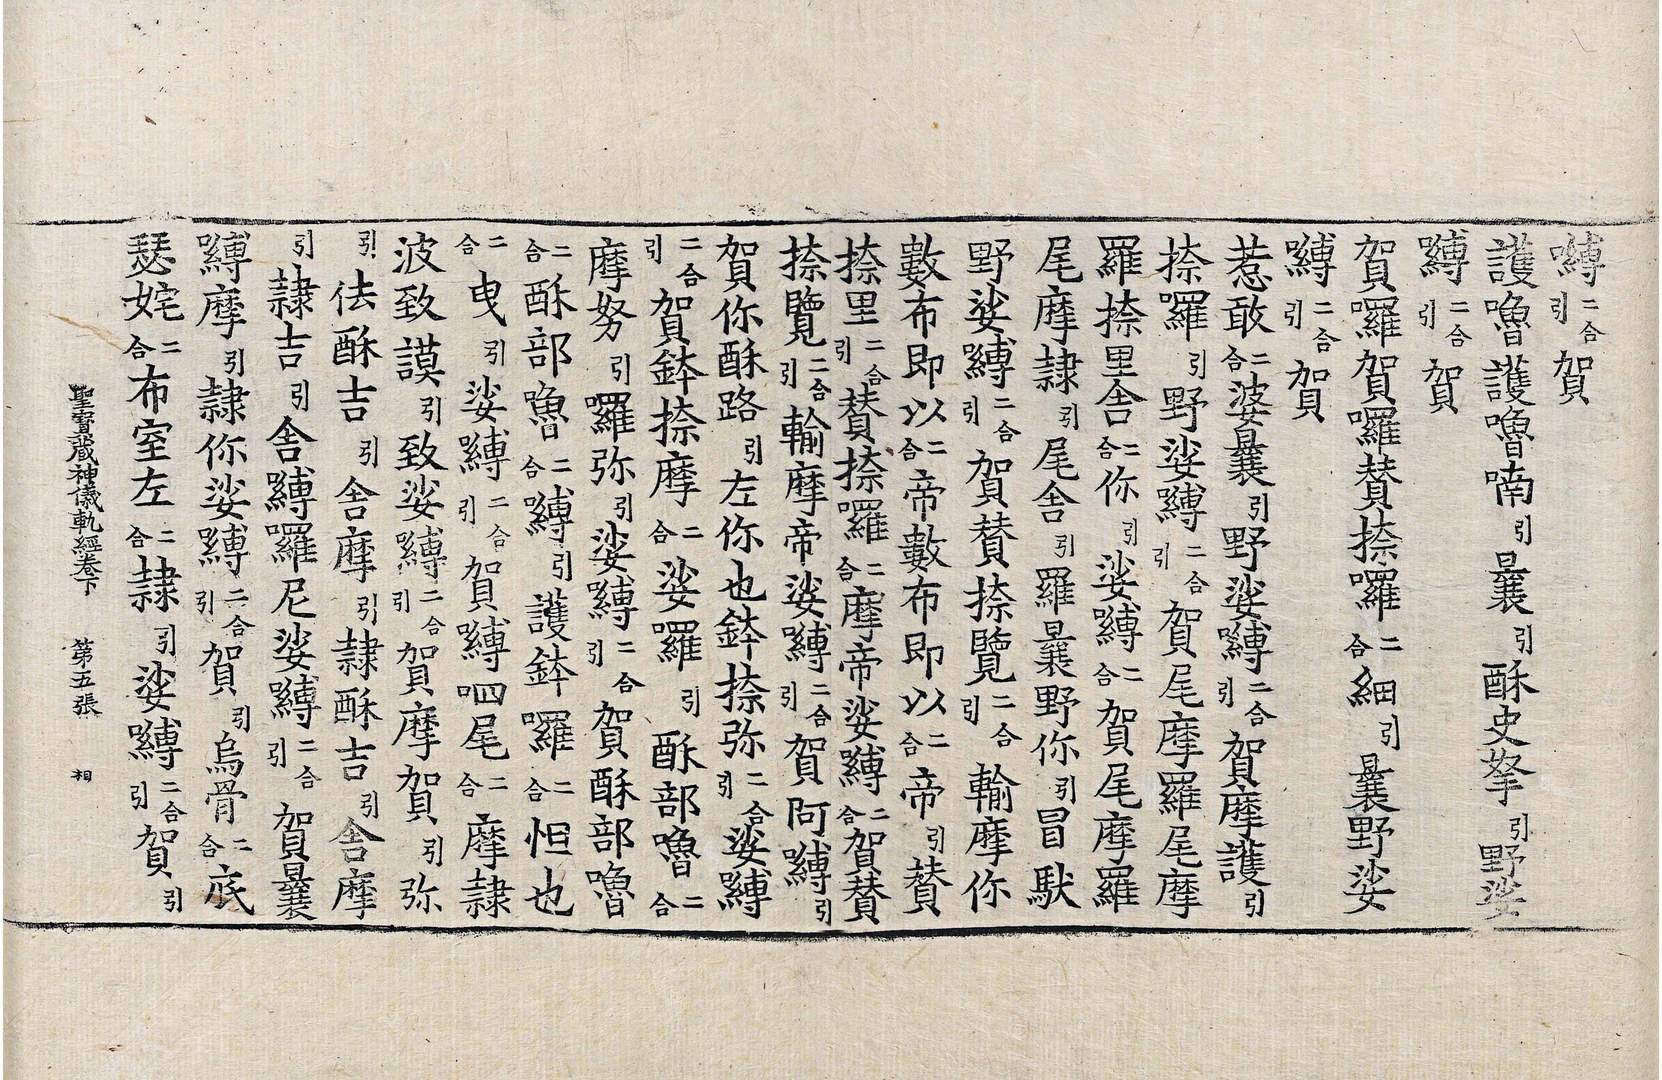 嚩二合引賀
護嚕護嚕喃引曩引酥史拏引野娑
嚩二合引賀
賀囉賀囉賛捺囉二合細引曩野娑
嚩二合引賀
惹敢二合婆曩引野娑嚩二合引賀摩護引
捺囉引野娑嚩二合引賀尾摩羅尾摩
羅捺里舍二合你引娑嚩二合引賀尾摩羅
尾摩隷引尾舍引羅曩野你引冒馱
野娑嚩二合引賀賛捺覽二合引輸摩你
數布即以二合帝數布即以二合帝引賛
捺里二合引賛捺囉二合摩帝娑嚩二合賀賛
捺覽二合引輸摩帝娑嚩二合引賀阿嚩引
賀你酥路引左你也鉢捺弥二合引娑嚩
二合引賀鉢捺摩二合娑羅引酥部嚕二合
摩努引囉弥引娑嚩二合引賀酥部嚕
二合酥部嚕二合嚩引護鉢囉二合怛也
二合曳引娑嚩二合引賀嚩呬尾二合摩隷
波致謨引致娑嚩二合引賀摩賀引弥
引佉酥吉引舍摩引隷酥吉引舍摩
引隷吉引舍嚩囉尼娑嚩二合引賀曩
嚩摩引隷你娑嚩二合引賀引烏骨二合底
瑟姹二合布室左二合隷引娑嚩二合引賀引
聖寶藏神儀軌經卷下　第五張　相